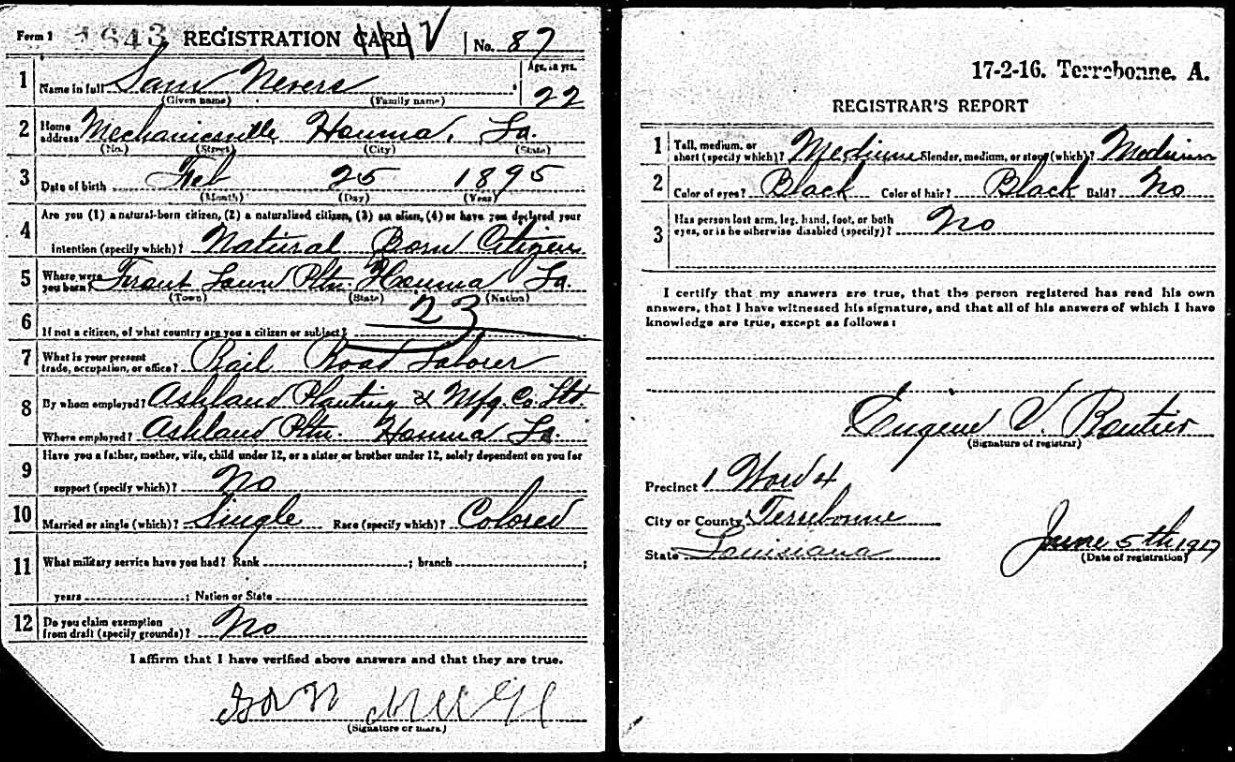 Form 1 1643 REGISTRATION CARD No. 87
1 Name in full Sam Nevers Age, in yrs. 22
(Given name) (Family name)
2 Home address Mechanicsville Houma, La.
(No.) (Street) (City) (State)
3 Date of birth Feb 25 1895
(Month) (Day) (Year)
4 Are you (1) a natural-born citizen, (2) a naturalized citizen, (3) an alien, (4) or have you declared your
intention (specify which)? Natural Born Citizen
5 Where were you born? Town Pltn. Houma La.
(Town) (State) (Nation)
23
6 If not a citizen, of what country are you a citizen or subject?
7 What is your present trade, occupation, or office? Rail Road Laborer
8 By whom employed? Ashland Planting & Mfg. Co. Ltd.
Where employed? Ashland Pltn. Houma La.
9 Have you a father, mother, wife, child under 12, or a sister or brother under 12, solely dependent on you for
support (specify which)? No
10 Married or single (which)? Single Race (specify which)? Colored
11 What military service have you had? Rank ; branch ;
years ; Nation or State
12 Do you claim exemption from draft (specify grounds)? No
I affirm that I have verified above answers and that they are true.
(Signature or mark)
17-2-16. Terrebonne. A.
REGISTRAR'S REPORT
1 Tall, medium, or short (specify which)? Medium Slender, medium, or stout (which)? Medium
2 Color of eyes? Black Color of hair? Black Bald? No
3 Has person lost arm, leg, hand, foot, or both eyes, or is he otherwise disabled (specify)? No
I certify that my answers are true, that the person registered has read his own
answers, that I have witnessed his signature, and that all of his answers of which I have
knowledge are true, except as follows:
Eugene V.
(Signature of registrar)
Precinct 1 Ward 4
City or County Terrebonne
State Louisiana
June 5th 1917
(Date of registration)